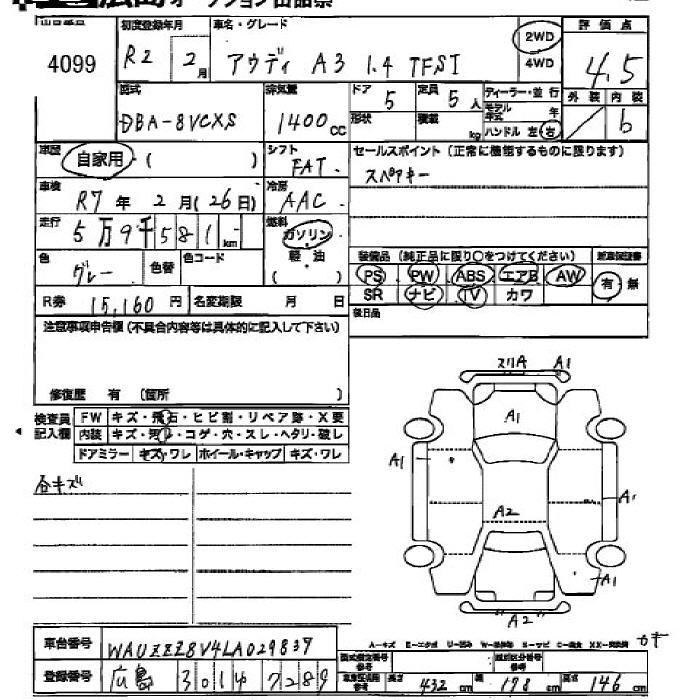 オークション出品票
4099
初度登録年月
R2 2月
車名・グレード
アウディ A3 1.4 TFSI
2WD
4WD
評価点
4.5
型式
DBA-8VCXS
排気量
1400cc
ドア 5
定員 5人
形状
積載 kg
ディーラー・並行
モデル年式 年
ハンドル 左・右
外装 内装
b
車歴
自家用・( )
シフト
FAT
セールスポイント (正常に機能するものに限ります)
スペアキー
車検
R7年 2月(26日)
冷房
AAC
走行
5万9千581km
燃料
ガソリン・
軽・油
( )
色
グレー
色替
色コード
R券 15,160円
名変期限 月 日
装備品 (純正品に限り○をつけてください)
新車保証書
PS PW ABS エアB AW
SR ナビ TV カワ
有・無
後日品
注意事項申告欄 (不具合内容等は具体的に記入して下さい)
修復歴 有 (箇所 )
検査員記入欄
FW キズ・飛石・ヒビ割・リペア跡・X要
内装 キズ・汚れ・コゲ・穴・スレ・ヘタリ・破レ
ドアミラー キズ・ワレ ホイール・キャップ キズ・ワレ
スリA A1
A1
A1
A1
A2
A1
A2
車台番号 WAUZZZ8V4LA029839
登録番号 広島 301 4 7289
長さ 432cm 幅 178cm 高さ 146cm